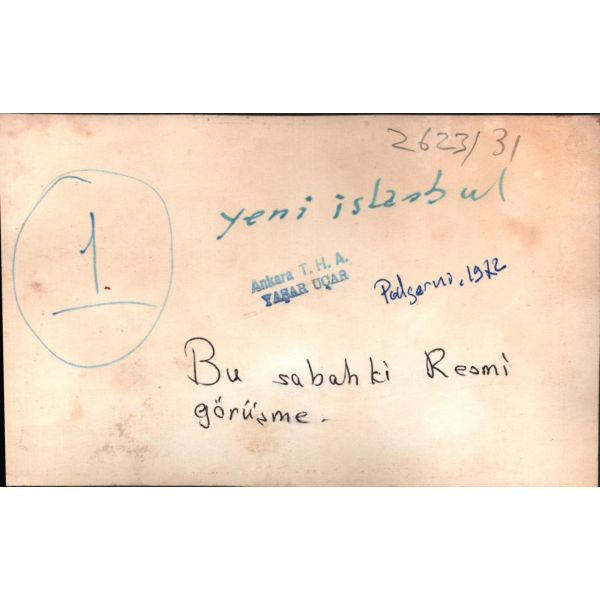 2623/31
yeni istanbul
1
Ankara T. H. A.
YAŞAR UÇAR
Podgorni, 1972
Bu sabahki Resmi
görüşme.